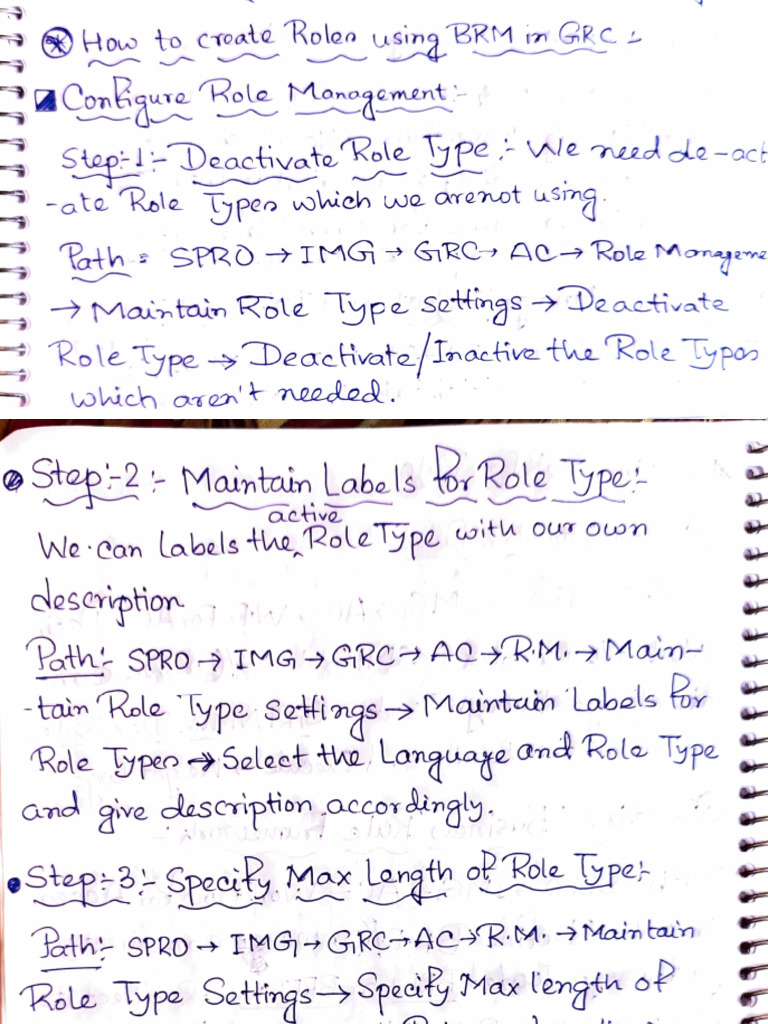 How to create Roles using BRM in GRC :-
Configure Role Management:-
Step:-1:- Deactivate Role Type :- We need de-act
-ate Role Types which we arenot using.
Path : SPRO → IMG → GRC → AC → Role Manageme
→ Maintain Role Type settings → Deactivate
Role Type → Deactivate/Inactive the Role Types
which aren't needed.
Step:-2:- Maintain Labels for Role Type:-
active
We can Labels the Role Type with our own
description
Path:- SPRO → IMG → GRC → AC → R.M. → Main-
-tain Role Type Settings → Maintain Labels for
Role Types → Select the Language and Role Type
and give description accordingly.
Step:-3:- Specify Max Length of Role Type:-
Path:- SPRO → IMG → GRC → AC → R.M. → Maintain
Role Type Settings → Specify Max length of